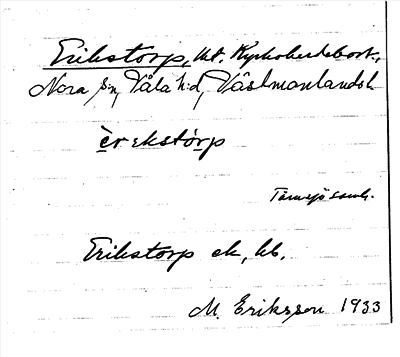 Erikstorp, ht. Kyrkoherdebost.,
Nora s:n, Våla h:d, Västmanlands l.
èrɛkstórp
Tärnsjö samh.
Erikstorp ek, kb.
M. Eriksson 1933